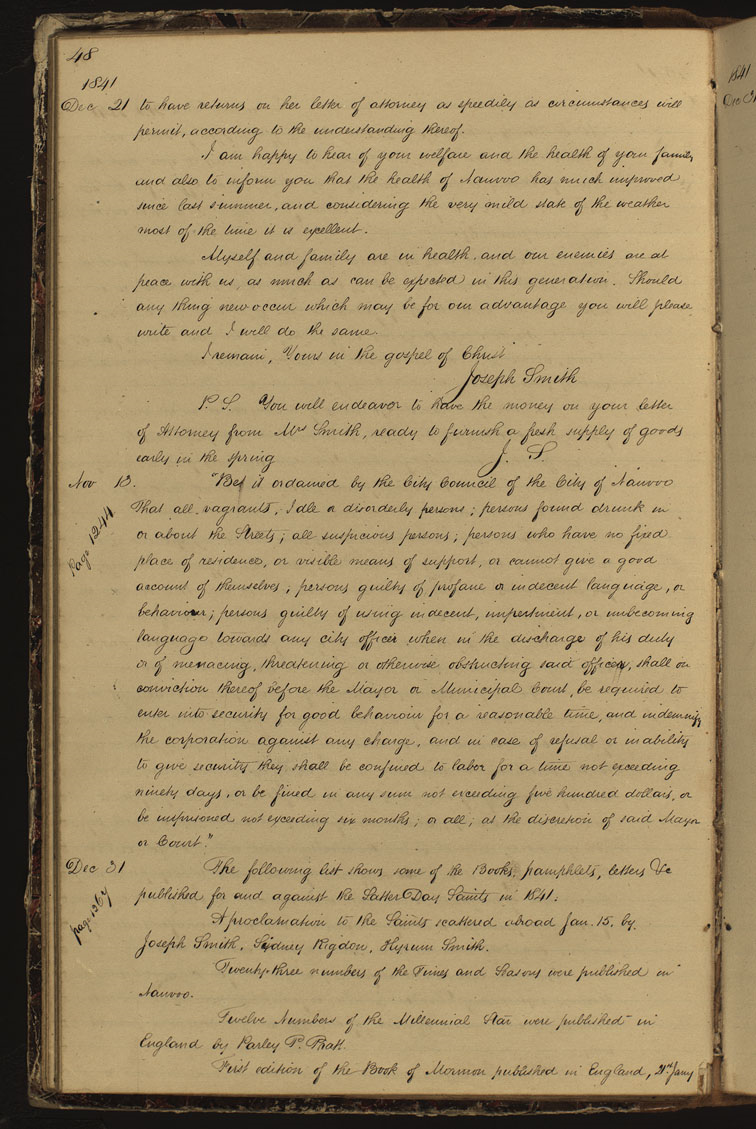 48
1841
Dec 21 to have returns on her letter of attorney as speedily as circumstances will
permit, according to the understanding thereof.
I am happy to hear of your welfare and the health of your family
and also to inform you that the health of Nauvoo has much improved
since last summer, and considering the very mild state of the weather
most of the time it is excellent.
Myself and family are in health, and our enemies are at
peace with us, as much as can be expected in this generation. Should
any thing new occur which may be for our advantage you will please
write and I will do the same.
I remain, Yours in the gospel of Christ
Joseph Smith
P. S. You will endeavor to have the money on your letter
of Attorney from Mrs Smith, ready to furnish a fresh supply of goods
early in the spring J. S.
Nov 13. "Be it ordained by the City Council of the City of Nauvoo
That all vagrants, Idle or disorderly persons; persons found drunk in
or about the Streets; all suspicious persons; persons who have no fixed
Page 1244
place of residence, or visible means of support, or cannot give a good
account of themselves; persons guilty of profane or indecent language, or
behaviour; persons guilty of using indecent, impertinent, or unbecoming
language towards any city officer when in the discharge of his duty
or of menacing, threatening or otherwise obstructing said officer, shall on
conviction thereof before the Mayor or Municipal Court, be required to
enter into security for good behaviour for a reasonable time, and indemnify
the corporation against any charge, and in case of refusal or inability
to give security they shall be confined to labor for a time not exceeding
ninety days, or be fined in any sum not exceeding five hundred dollars, or
be imprisoned not exceeding six months; or all; as the discretion of said Mayor
or Court."
Dec 31 The following list shows some of the Books, pamphlets, letters &c
published for and against the Latter Day Saints in 1841.
page 1267
A proclamation to the Saints scattered abroad Jan. 15. by
Joseph Smith, Sidney Rigdon, Hyrum Smith.
Twenty-three numbers of the Times and Seasons were published in
Nauvoo.
Twelve Numbers of the Millennial Star were published in
England by Parley P. Pratt.
First edition of the Book of Mormon published in England, 21st Jany
1841
Dec 31